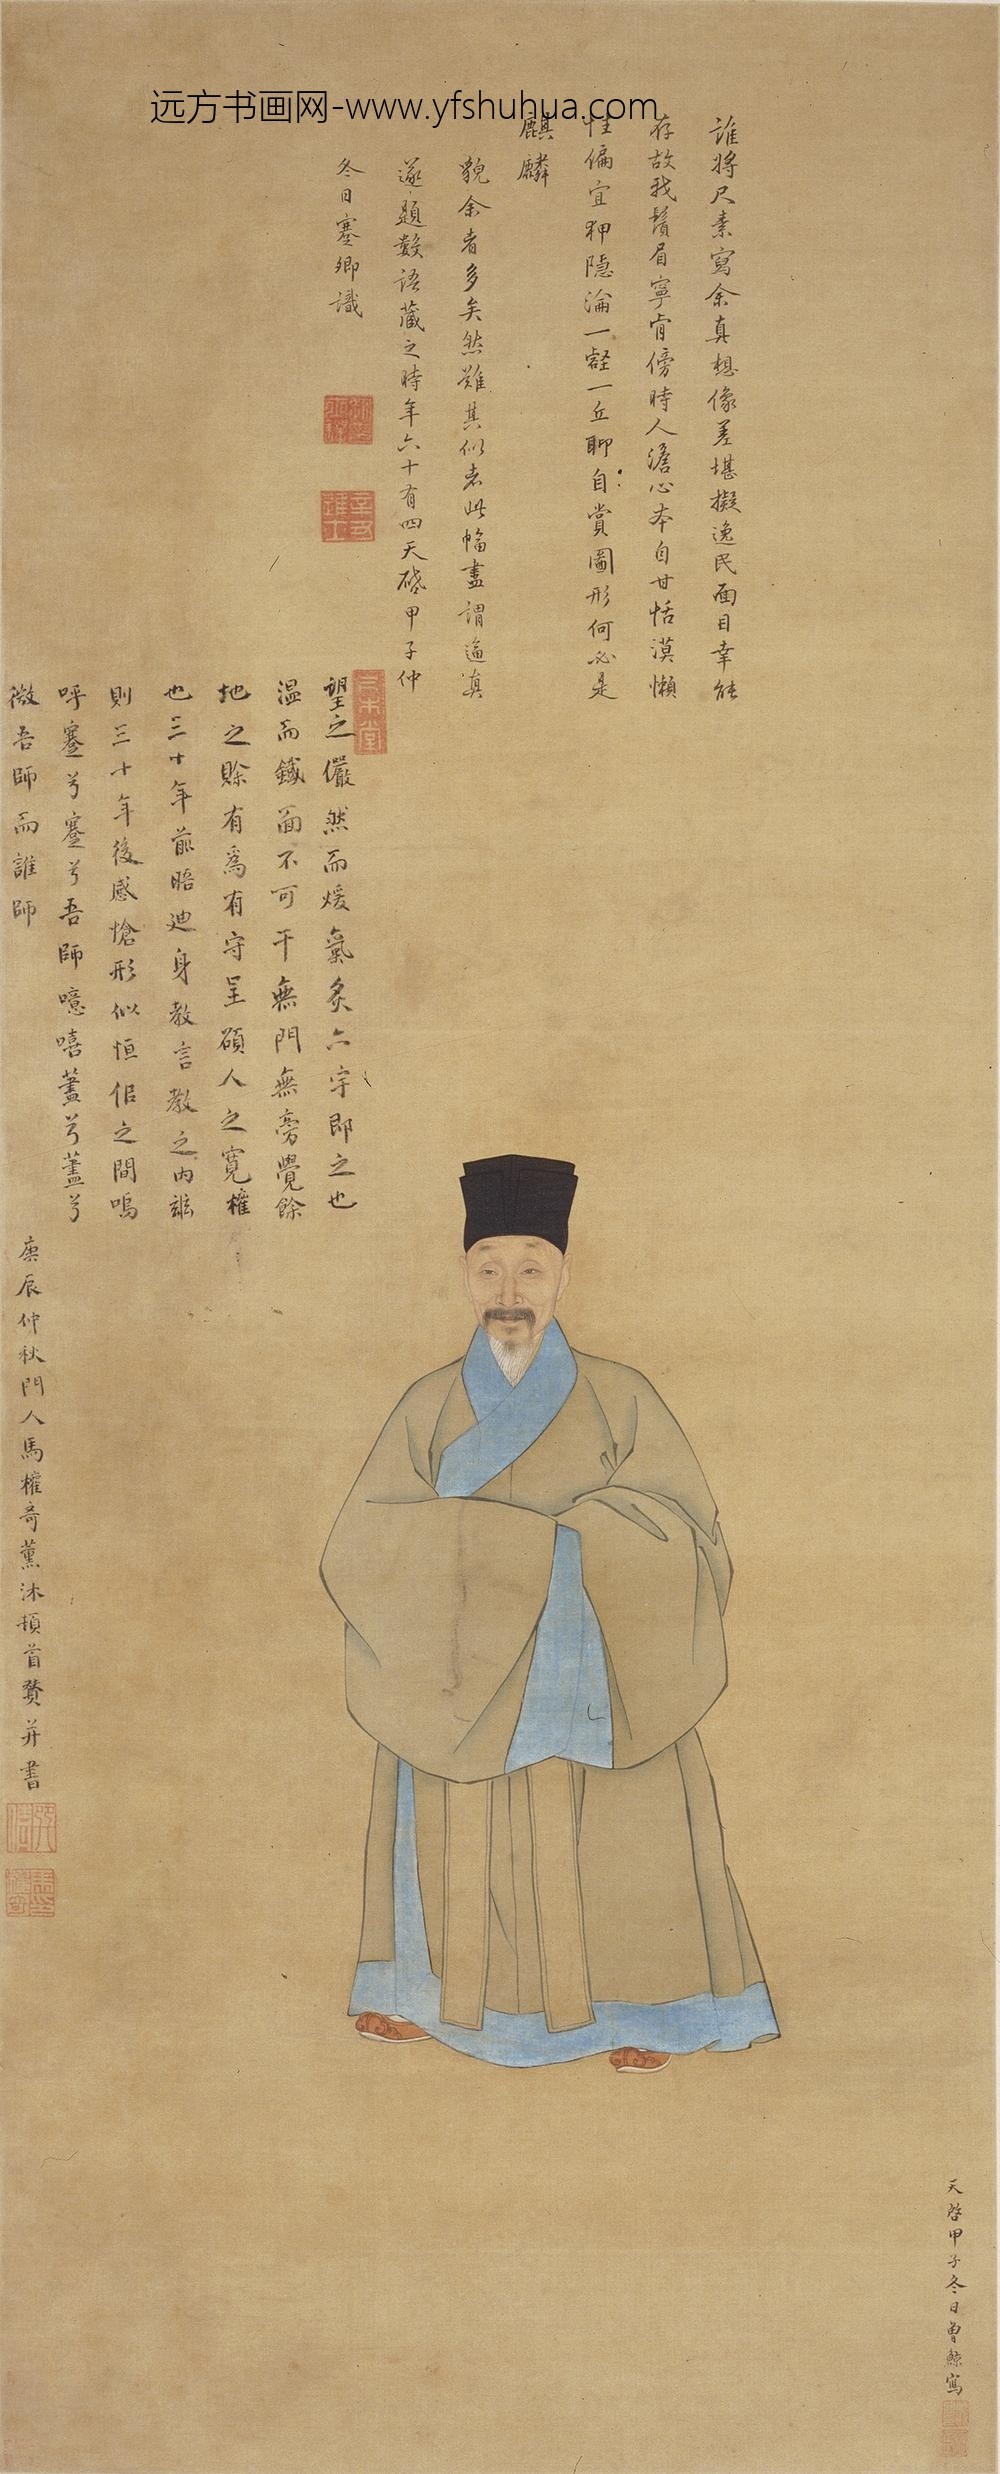 远方书画网-www.yfshuhua.com
誰將尺素寫余真想像差堪擬逸民面目幸能
存故我鬚眉寧肯傍時人澹心本自甘恬漠懶
性偏宜狎隱淪一壑一丘聊自賞圖形何必是
麒麟
貌余者多矣然難其似者此幅盡謂逼真
遂題數語藏之時年六十有四天啟甲子仲
冬日蹇卿識
望之儼然而煖氣炙六宇即之也
溫而鐵面不可干無門無旁覺餘
地之賒有為有守呈碩人之寬權
也三十年前晤迪身教言教之內茲
則三十年後感愴形似恒侶之間嗚
呼蹇兮蹇兮吾師噫嘻藎兮藎兮
微吾師而誰師
庚辰仲秋門人馬權奇薰沐頓首贊并書
天啓甲子冬日曾鯨寫
辛丑進士